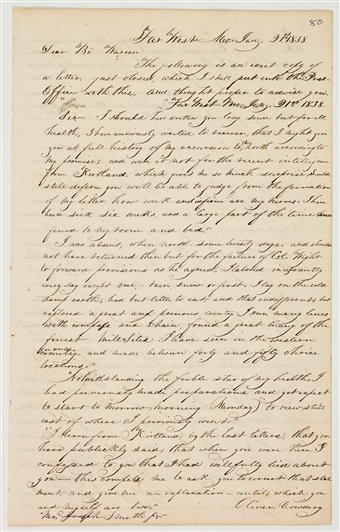 80
Far West, Mo. Jany. 21st 1838.
Dear Br. Warren
The following is an exact copy of
a letter just closed, which I shall put into the Post
Office with this, and thought proper to advise you.
"Far West, Mo. Jany. 21st 1838.
Sir— I should have written you long since but for ill
health, I have anxiously waited to recover, that I might give
you a full history of my excursion to the north according to
my promise; and were it not for the recent intelligence
from Kirtland, which gives me so much surprise I should
still defer you will be able to judge from the formation
of my letter how weak and are my nerves. I have
been sick six weeks and a large part of the time con-
fined to my room and bed.
I was absent, when north some twenty days and should
not have returned then but for the failure of Col. Wight
to forward provisions as he agreed. I labored incessantly
every day except one, rain snow or frost, I lay on the cold
damp earth; had but little to eat, and that indifferent; but
explored a great and precious country I run many lines
with compass and chain, found a great many of the
finest mill sites I have seen in the western
country, and made between forty and fifty choice
locations.
"Notwithstanding the feeble state of my health, I
had previously made preparations, and yet expect
to start tomorrow morning (Monday) to view still
east of where I previously went."
"I learn from Kirtland, by the last letters, that you
have publickly said, that when you were here I
confessed to you that I had willfully lied about
you— this compels me to ask you to correct that state-
ment, and give me an explanation— until which you
and myself are two."
Oliver Cowdery
"Mr. Joseph Smith jr."